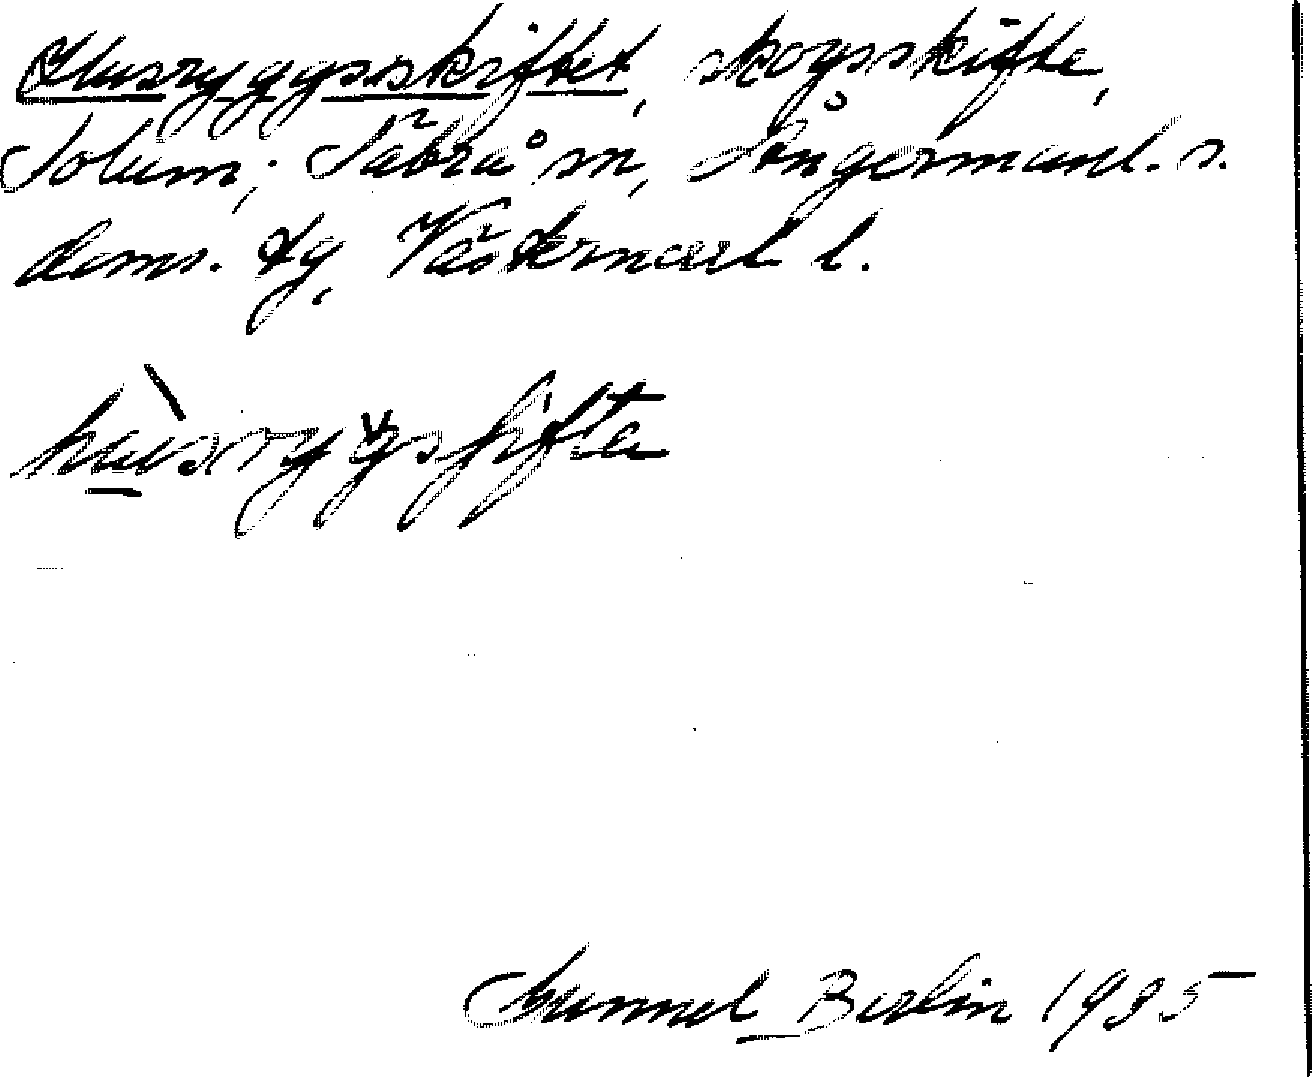 Husryggsskiftet, skogsskifte,
Solum; Säbrå sn, Ångermanl. s.
doms. tg, Västernorrl. l.
husryggsʃifta
Gunnel Berlin 1935